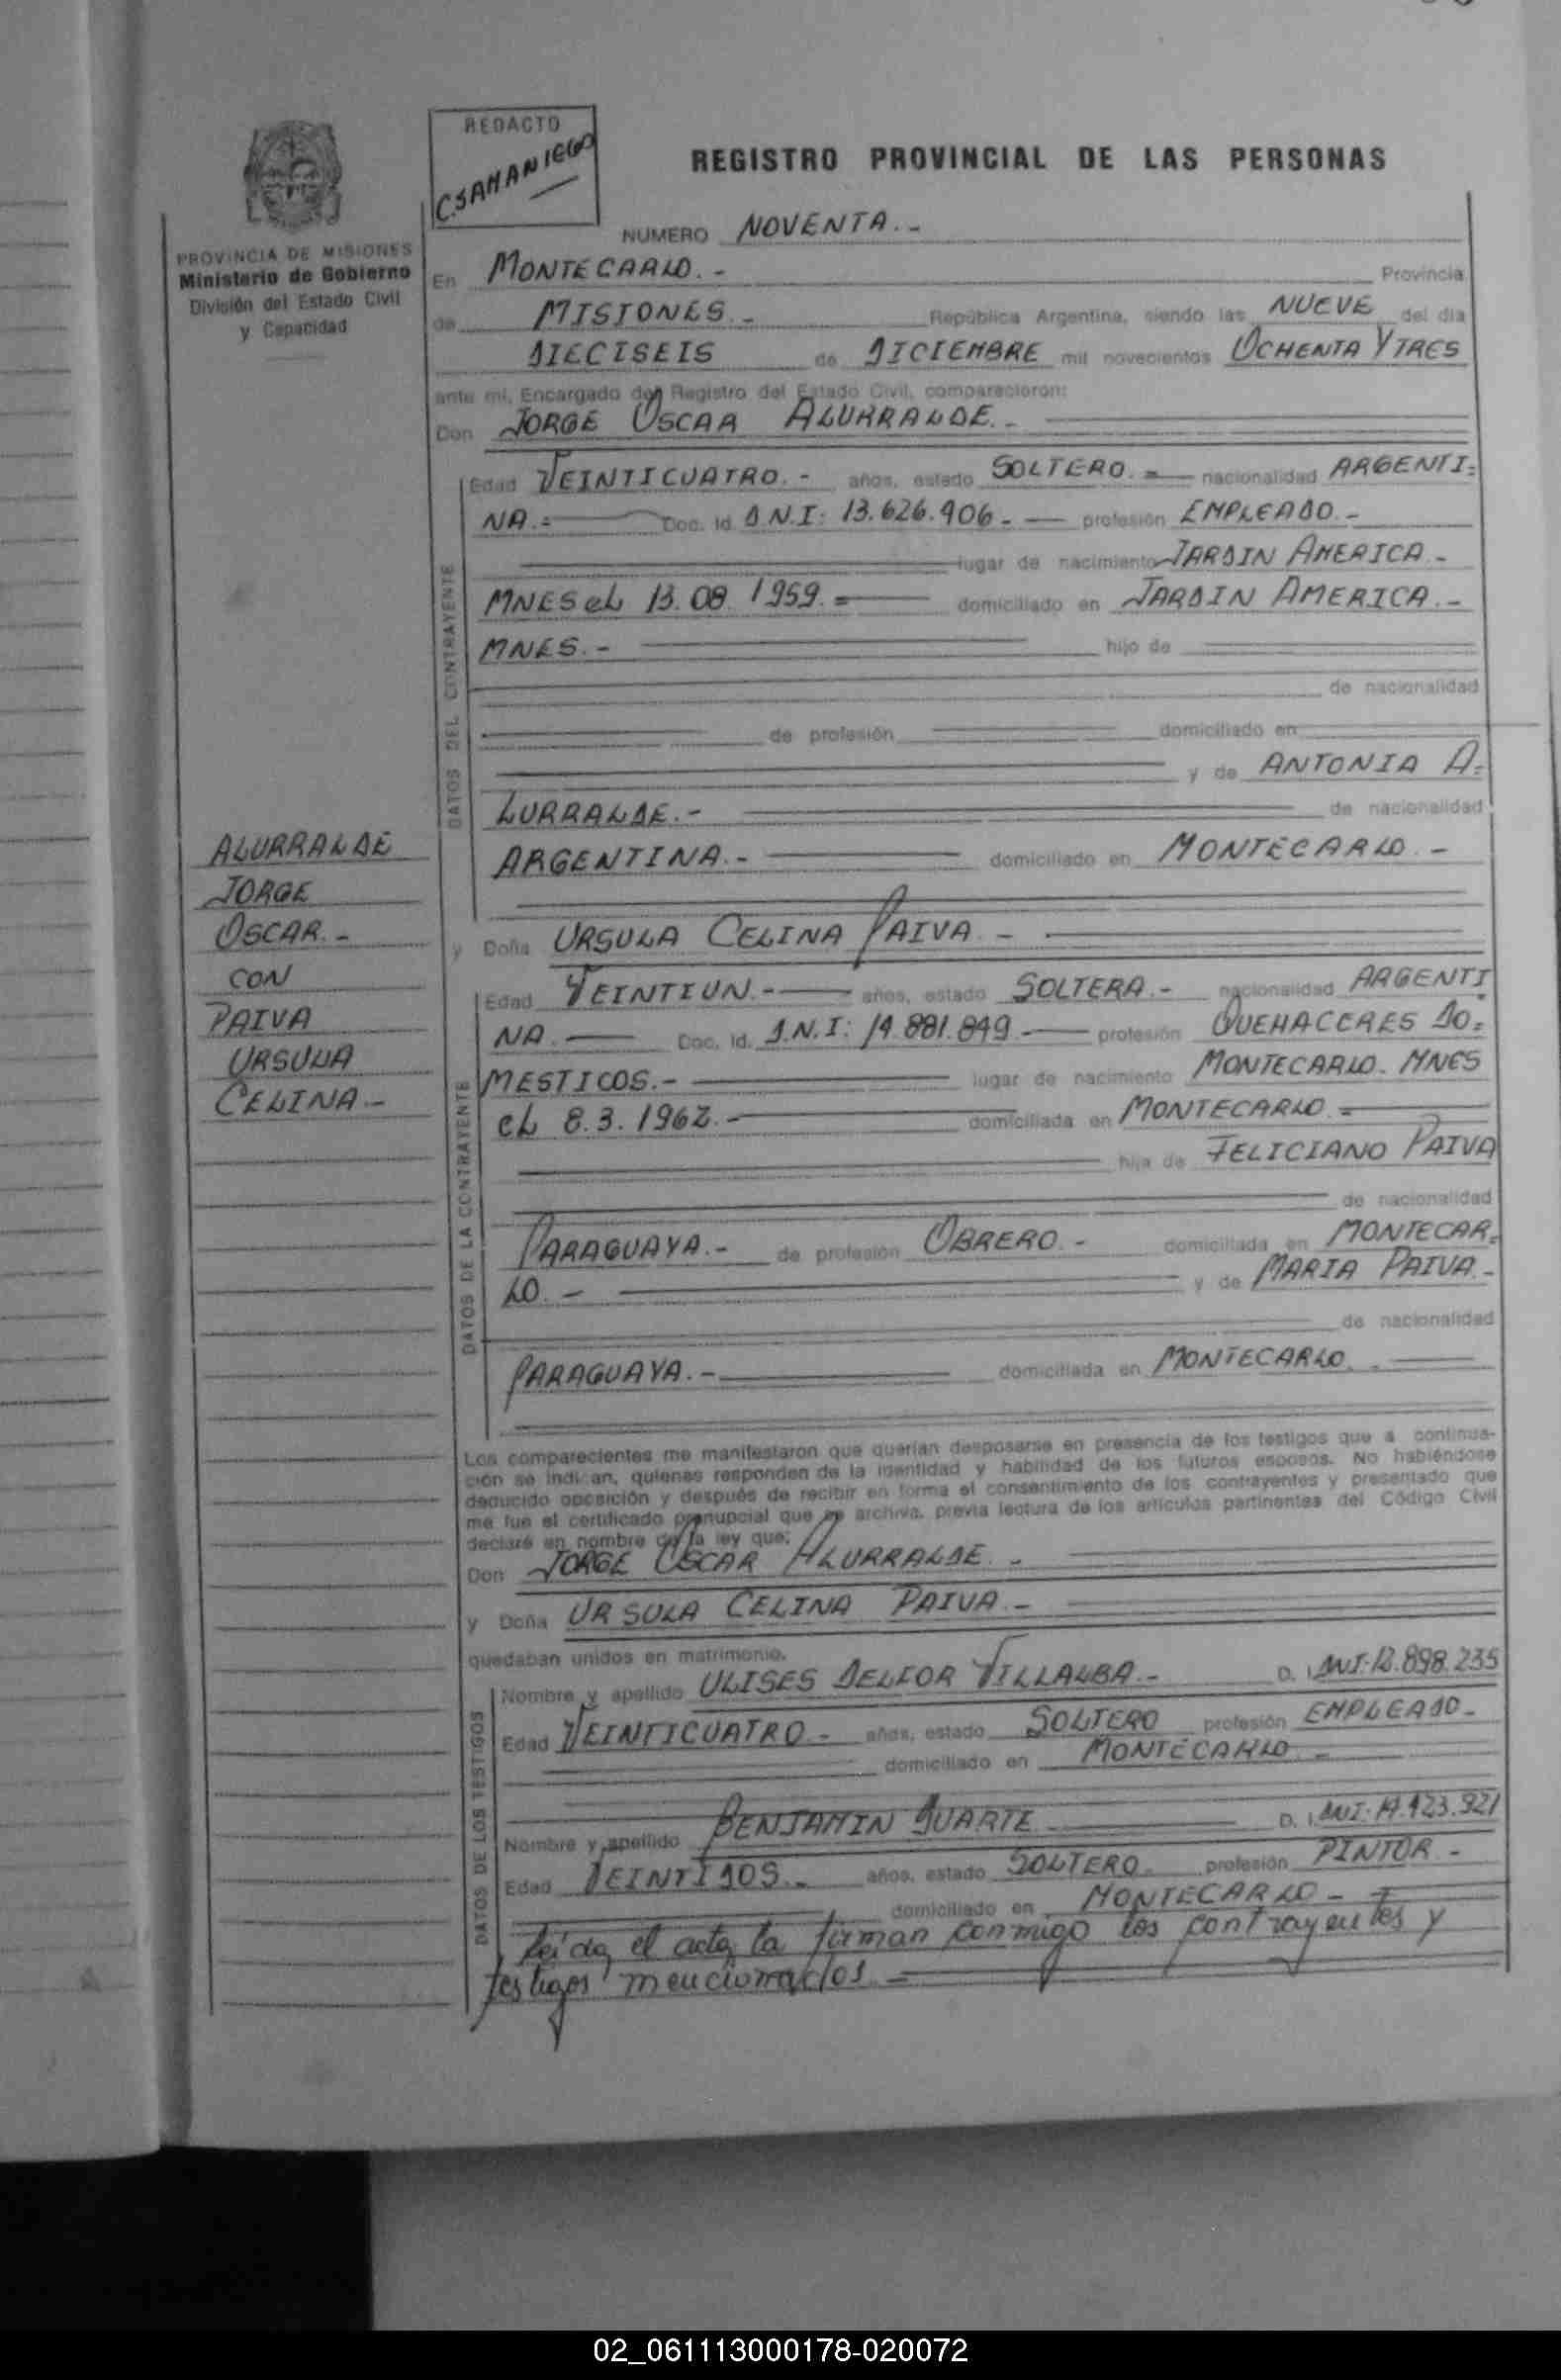 REDACTO
C.SAMANIEGO
REGISTRO PROVINCIAL DE LAS PERSONAS
PROVINCIA DE MISIONES
Ministerio de Gobierno
División del Estado Civil
y Capacidad
NUMERO NOVENTA.-
En MONTECARLO.- Provincia
de MISIONES.- República Argentina, siendo las NUEVE del día
DIECISEIS de DICIEMBRE mil novecientos OCHENTA Y TRES
ante mi, Encargado del Registro del Estado Civil, comparecieron:
Don JORGE OSCAR ALURRALDE.-
DATOS DEL CONTRAYENTE
Edad VEINTICUATRO.- años, estado SOLTERO.- nacionalidad ARGENTI=
NA.= Doc. Id. D.N.I: 13.626.906.- profesión EMPLEADO.-
lugar de nacimiento JARDIN AMERICA.-
MNES eL 13.08.1959.= domiciliado en JARDIN AMERICA.-
MNES.- hijo de
de nacionalidad
de profesión domiciliado en
y de ANTONIA A=
LURRALDE.- de nacionalidad
ARGENTINA.- domiciliado en MONTECARLO.-
ALURRALDE
JORGE
OSCAR.-
CON
PAIVA
URSULA
CELINA.-
y Doña URSULA CELINA PAIVA.-
DATOS DE LA CONTRAYENTE
Edad VEINTIUN.- años, estado SOLTERA.- nacionalidad ARGENTI
NA.- Doc. Id. D.N.I: 14.881.849.- profesión QUEHACERES DO=
MESTICOS.- lugar de nacimiento MONTECARLO. MNES
eL 8.3.1962.- domiciliada en MONTECARLO.=
hija de FELICIANO PAIVA
de nacionalidad
PARAGUAYA.- de profesión OBRERO.- domiciliada en MONTECAR=
LO.- y de MARIA PAIVA.-
de nacionalidad
PARAGUAYA.- domiciliada en MONTECARLO.-
Los comparecientes me manifestaron que querían desposarse en presencia de los testigos que a continua-
ción se indican, quienes responden de la identidad y habilidad de los futuros esposos. No habiéndose
deducido oposición y después de recibir en forma el consentimiento de los contrayentes y presentado que
me fue el certificado prenupcial que se archiva, previa lectura de los artículos pertinentes del Código Civil
declaré en nombre de la ley que:
Don JORGE OSCAR ALURRALDE.-
y Doña URSULA CELINA PAIVA.-
quedaban unidos en matrimonio.
DATOS DE LOS TESTIGOS
Nombre y apellido ULISES DELFOR VILLALBA.- D. I. DNI: 12.898.235
Edad VEINTICUATRO.- años, estado SOLTERO profesión EMPLEADO.-
domiciliado en MONTECARLO.-
Nombre y apellido BENJAMIN DUARTE D. I. DNI:
Edad VEINTIDOS.- años, estado SOLTERO.- profesión PINTOR.-
domiciliado en MONTECARLO.-
Leida el acta la firman conmigo los contrayentes y
testigos mencionados.=
02_061113000178-020072